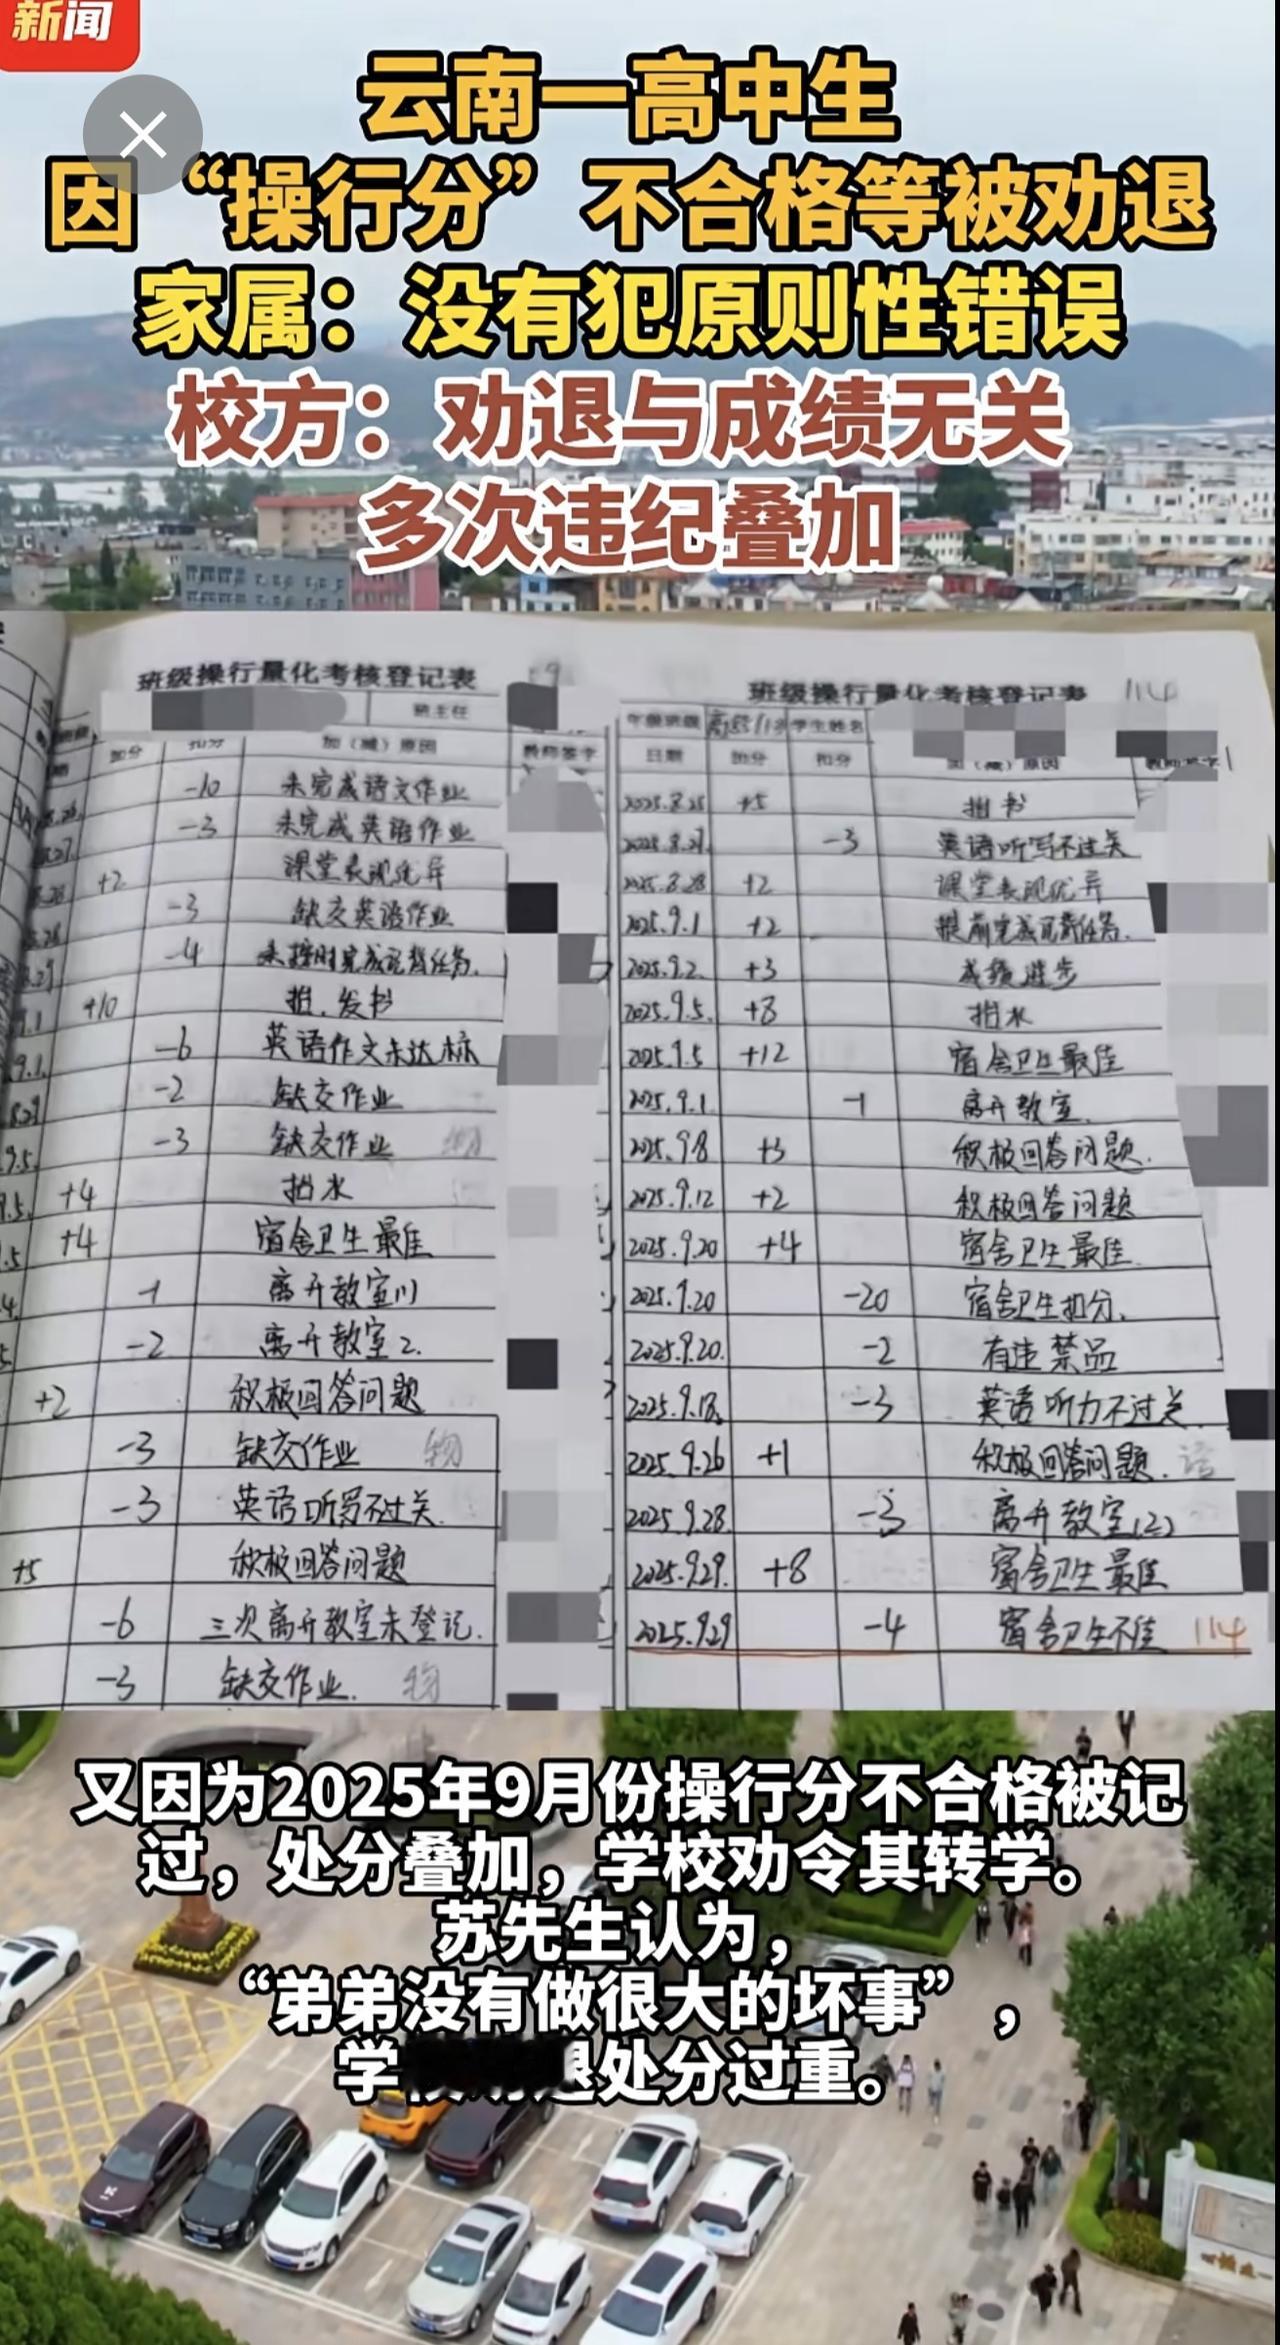 新闻
云南一高中生
因“操行分”不合格等被劝退
家属：没有犯原则性错误
校方：劝退与成绩无关
多次违纪叠加
班级操行量化考核登记表
班主任
加分 扣分 加（减）原因 教师签字
-10 未完成语文作业
-3 未完成英语作业
+2 课堂表现优异
-3 缺交英语作业
-4 未按时完成记背任务.
+10 担.发书
-6 英语作文未达标
-2 缺交作业
-3 缺交作业 物
+4 抬水
+4 宿舍卫生最佳
-1 离开教室(1)
-2 离开教室2.
+2 积极回答问题
-3 缺交作业 物
-3 英语听写不过关.
+5 积极回答问题
-6 三次离开教室未登记.
-3 缺交作业. 物
班级操行量化考核登记表 114
年级班级 学生姓名
日期 加分 扣分 加（减）原因
2025.8.25 +5 担书
2025.8.27. -3 英语听写不过关
2025.8.28 +2 课堂表现优异
2025.9.1 +2 提前完成记背任务.
2025.9.2. +3 成绩进步
2025.9.5. +8 抬水
2025.9.5 +12 宿舍卫生最佳
2025.9.1. -1 离开教室.
2025.9.8 +3 积极回答问题.
2025.9.12 +2 积极回答问题
2025.9.20 +4 宿舍卫生最佳.
2025.9.20 -20 宿舍卫生扣分.
2025.9.20. -2 有违禁品
2025.9.18. -3 英语听力不过关.
2025.9.26 +1 积极回答问题. 语
2025.9.28. -3 离开教室(2)
2025.9.29. +8 宿舍卫生最佳
2025.9.29 -4 宿舍卫生不佳 114
又因为2025年9月份操行分不合格被记
过，处分叠加，学校劝令其转学。
苏先生认为，
“弟弟没有做很大的坏事”，
学退处分过重。